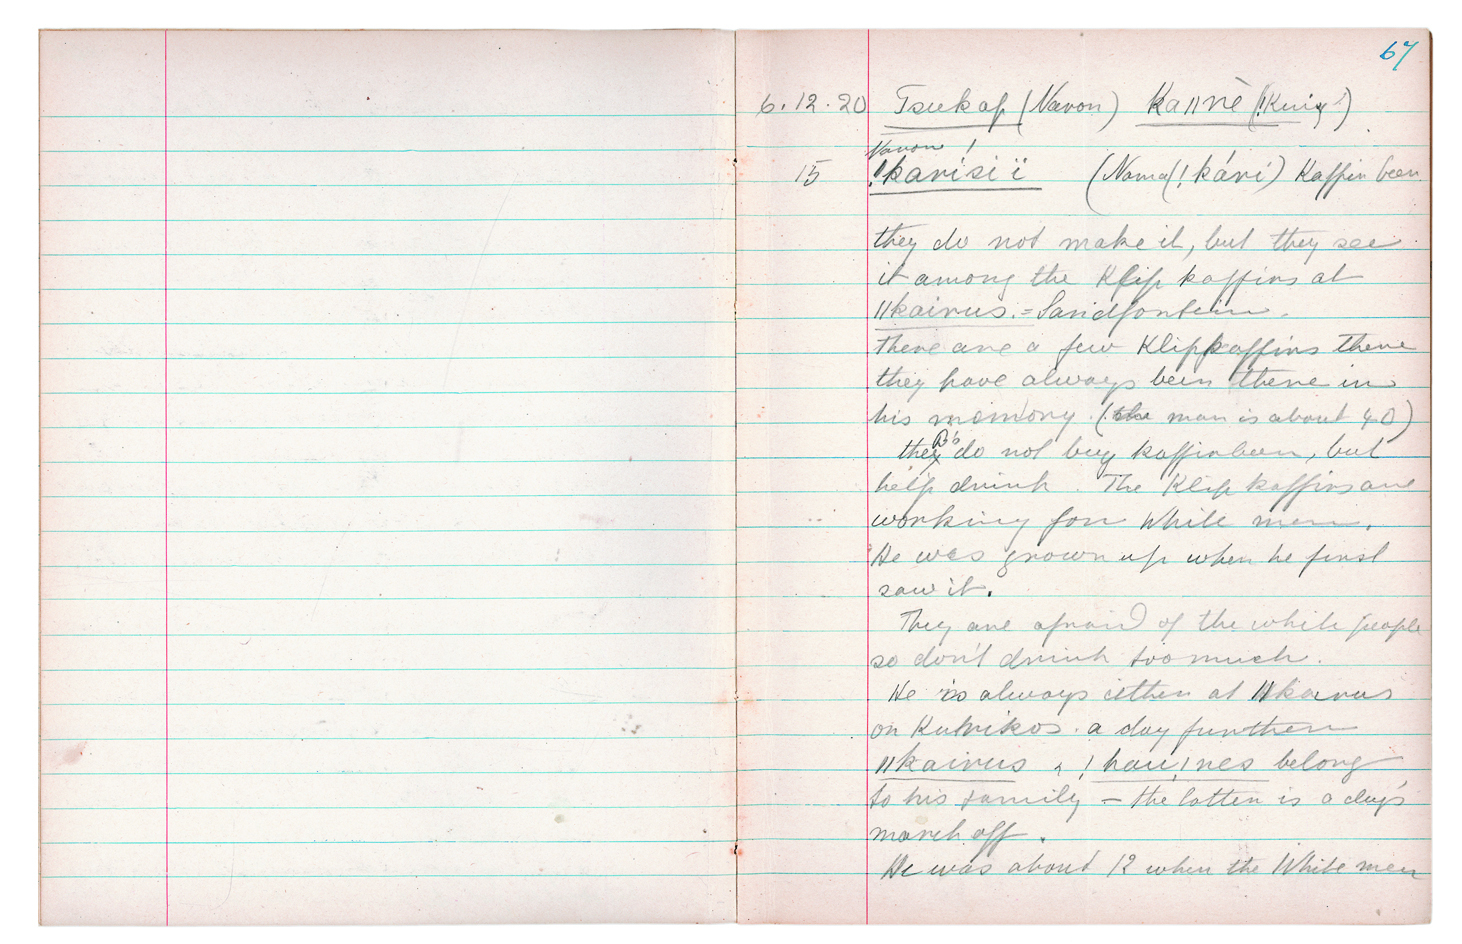 67
6.12.20 Tsukop (Naron) Kaǁnè (!Kung!)
Naron !
15 !karísi ï (Nama (!kári) Kaffir beer
they do not make it, but they see
it among the Klip kaffirs at
ǁkairus. = Sandfontein.
There are a few Klipkaffirs there
they have always been there in
his memory. (the man is about 40)
they B's do not buy kaffirbeer, but
help drink. The Klip kaffirs are
working for White men.
He was grown up when he first
saw it.
They are afraid of the white people
so don't drink too much.
He is always either at ǁkairus
or a day further
ǁkairus & !hau!nes belong
to his family – the latter is a day's
march off.
He was about 12 when the White men